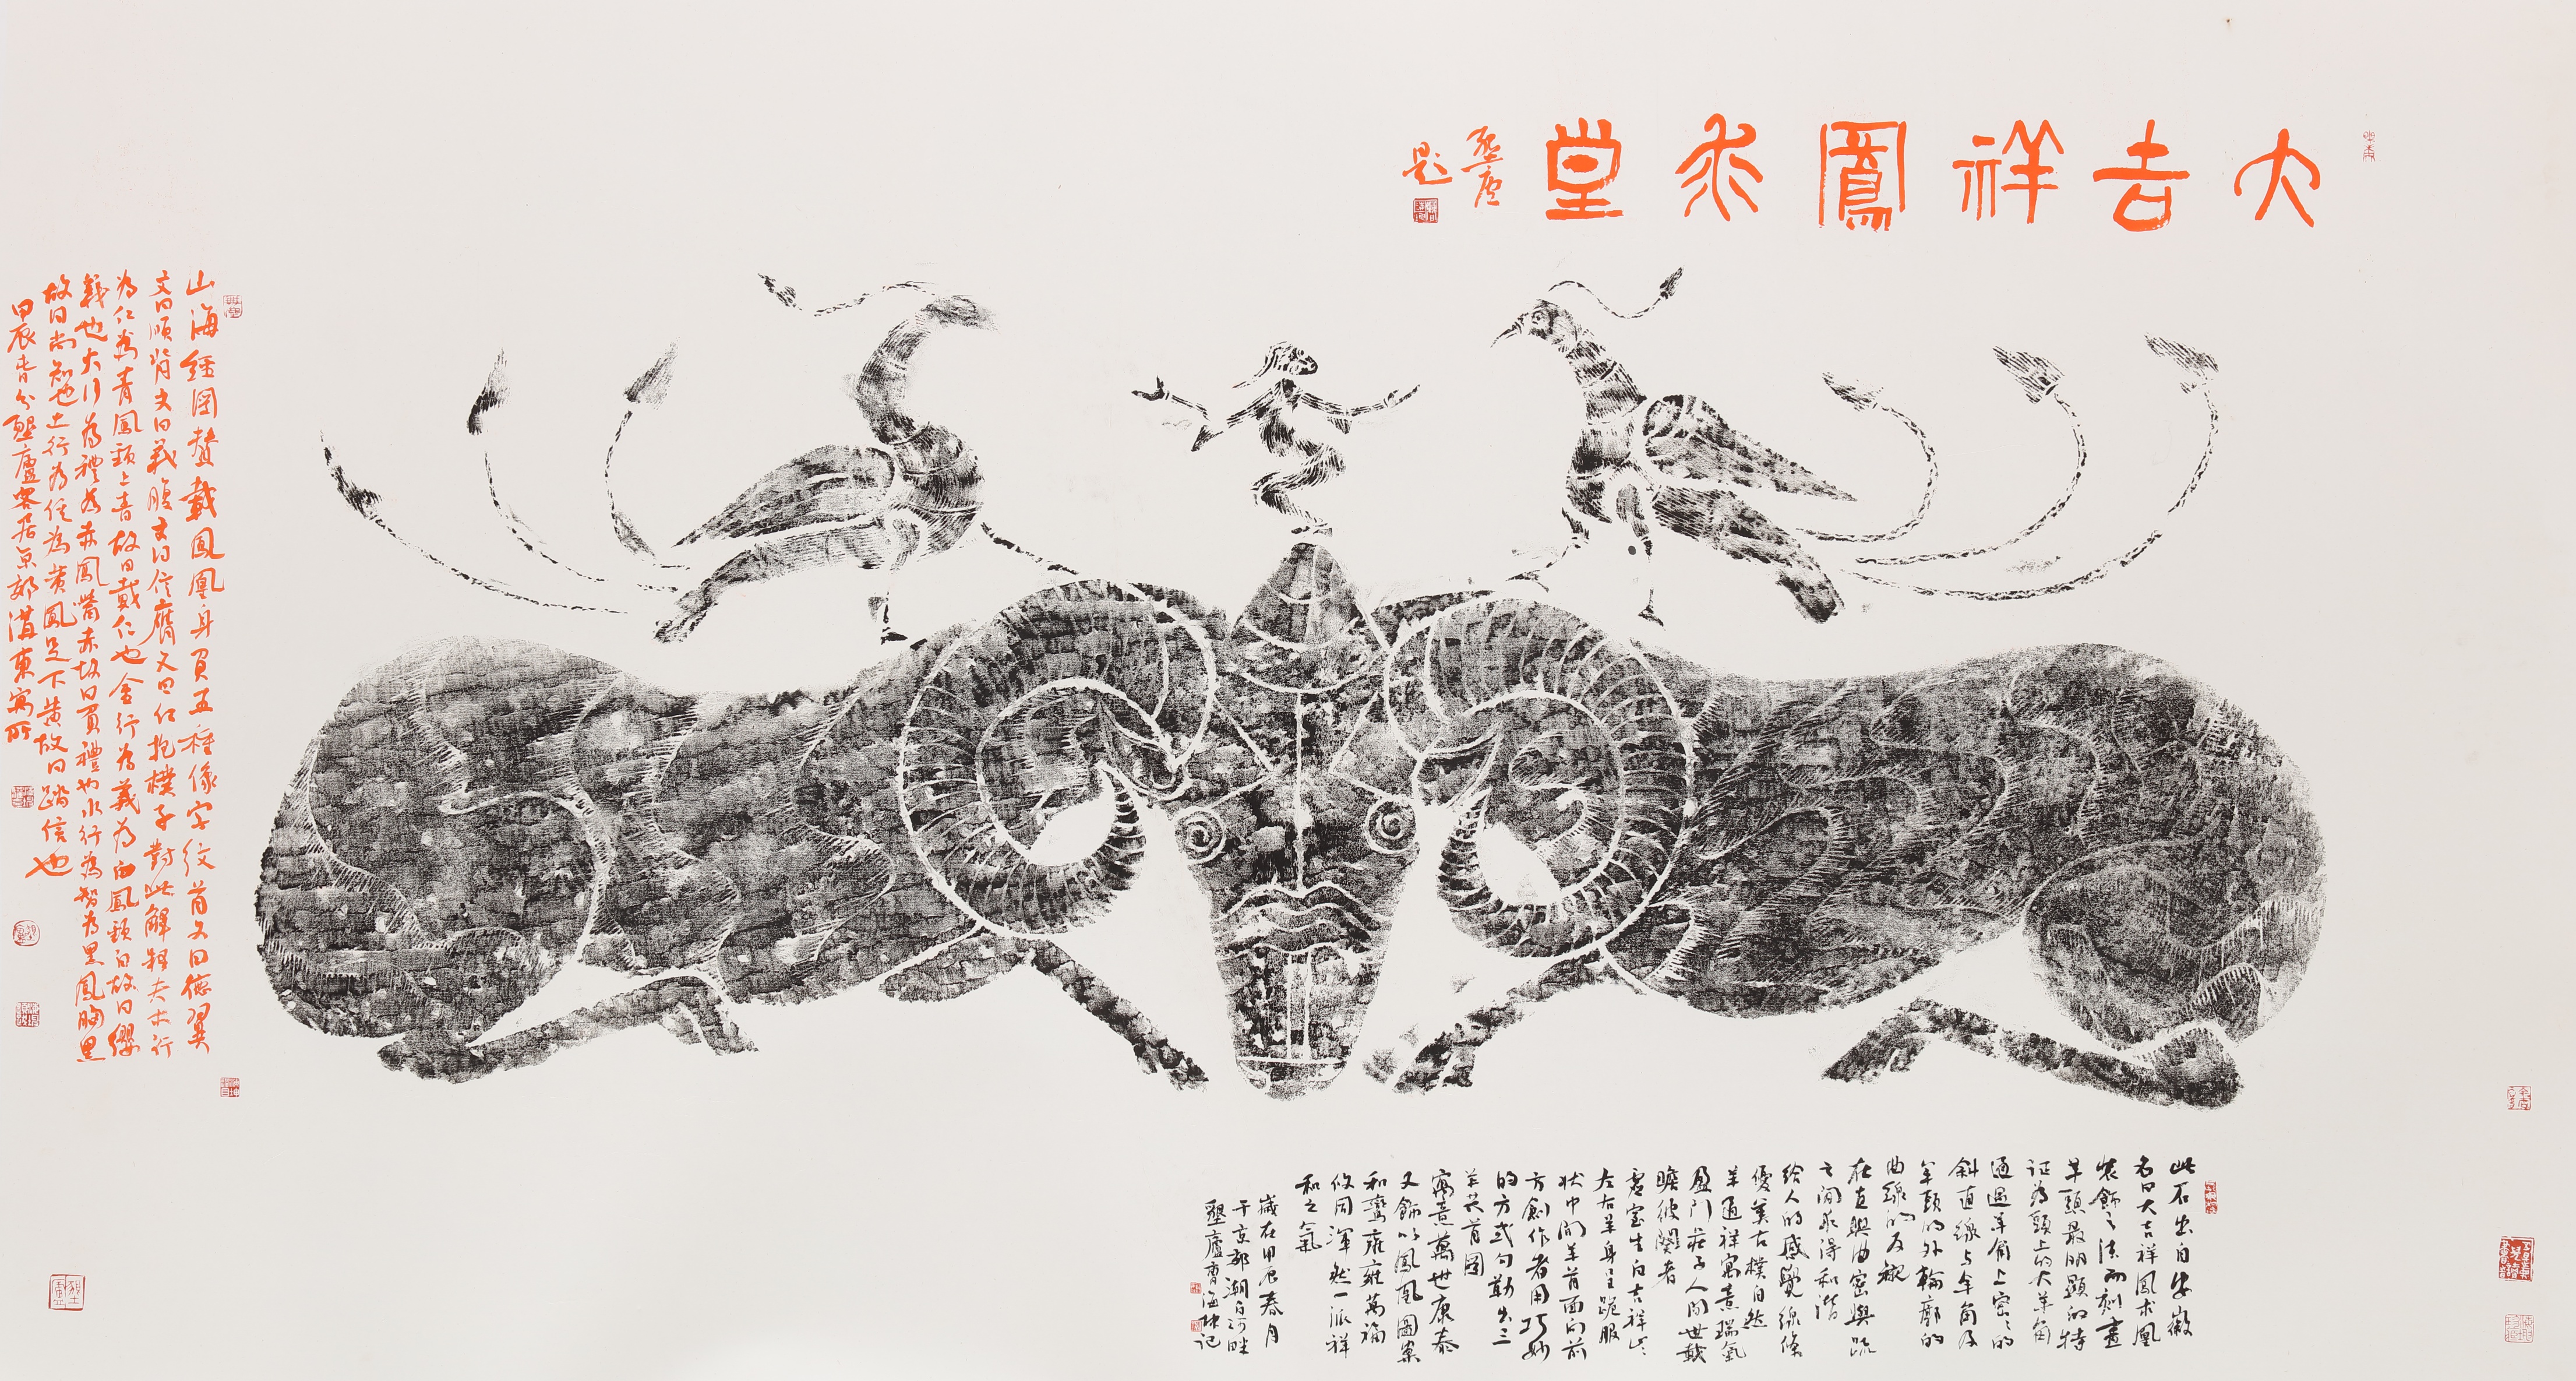 大吉祥鳳求堂
墾廬
題
此石出自安徽
名曰大吉祥鳳求凰
裝飾之法而刻畫
羊頭最明顯的特
証為頭上的大羊角
通過羊角上密密的
斜直線与羊角及
羊頭的外輪廓的
曲線的反襯
在直與曲密與疏
之間求得和諧
給人的感覺線條
優美古樸自然
羊通祥寓意瑞氣
盈門莊子人間世載
瞻彼闋者
虛室生白吉祥止止
左右羊身呈跪服
狀中間羊首面向前
方創作者用巧妙
的方式勾勒出三
羊共首圖
寓意萬世康泰
又飾以鳳凰圖案
和鸞雍雍萬福
攸同渾然一派祥
和之氣
歲在甲辰春月
于京郊潮白河畔
墾廬曹海坤記
山海經圖贊載鳳凰身負五種像字紋首文曰德翼
文曰順背文曰義腹文曰信膺文曰仁抱樸子對此解釋夫木行
為仁為青鳳頭上青故曰戴仁也金行為義為白鳳頸白故曰纓
義也火行為禮為赤鳳嘴赤故曰負禮也水行為智為黑鳳胸黑
故曰尚知也土行為信為黃鳳足下黃故曰蹈信也
甲辰春分墾廬客居京郊潞東寓所